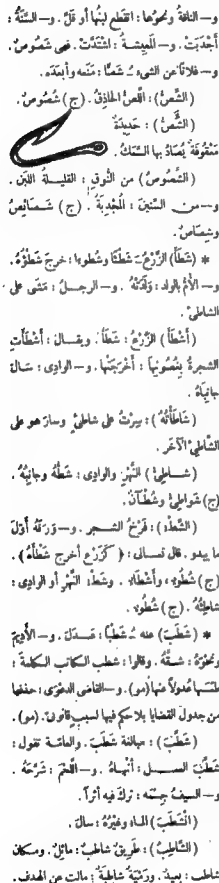 – الناقةُ ونحوُها : انقطع لبنُها أو قَلَّ . و – السَّنَةُ :
أَجْدَبَتْ . و – المَعِيشَةُ : اشْتَدَّتْ . فهى شَصُوصٌ .
و – فلانًا عن الشىءِ ـُ شَصًّا : مَنَعَه وأَبعدَه .
(الشَّصُّ) : اللِّصُّ الحاذِقُ . (ج) شُصُوصٌ .
(الشِّصُّ) : حَدِيدَةٌ
مَعْقُوفَةٌ يُصَادُ بها السَّمَكُ .
(الشَّصُوصُ) من النُّوقِ : القليلةُ اللبَنِ .
و – من السِّنينَ : المُجْدِبَةُ . (ج) شَصَائِصُ
وشِصَاصٌ .
* (شَطَأَ) الزَّرْعُ ـَ شَطْئًا وشُطُوءًا : خرجَ شَطْؤُهُ .
و – الأُمُّ بالولد : وَلَدَتْهُ . و – الرجلُ : مَشَى على
الشاطئ .
(أَشْطَأَ) الزَّرْعُ : شَطَأَ . ويقال : أَشْطَأَتِ
الشجرةُ بِغُصُونِها : أَخْرَجَتْها . و – الوادِى : سَالَ
جانِبَاهُ .
(شَاطَأْتُهُ) : سِرْتُ على شاطِئٍ وسارَ هو على
الشَّاطِئِ الآخَرِ .
(شَاطِئُ) النَّهْرِ والوادِى : شَطُّهُ وجانِبُهُ .
(ج) شَوَاطِئُ وشُطْآنٌ .
(الشَّطْءُ) : فَرْخُ الشجر . و – وَرَقُهُ أَوّلَ
ما يبدو . قال تعالى : ﴿كَزَرْعٍ أَخْرَجَ شَطْأَهُ﴾ .
(ج) شُطُوءٌ ، وأَشْطَاءٌ . وشَطْءُ النَّهْرِ أو الوادِى :
شاطِئُهُ . (ج) شُطُوءٌ .
* (شَطَبَ) عنه ـُ شَطْبًا : عَدَلَ . و – الأَدِيمَ
ونَحْوَهُ : شَقَّهُ . وقالوا : شطب الكاتبُ الكلمةَ :
طمسها عُدولاً عنها (مو) . و – القاضى الدعْوَى : حذفها
من جدول القضايا بلا حكم فيها لسببٍ قانونىّ . (مو) .
(شَطَّبَ) : مبالغة شَطَبَ . والعامّة تقول :
شَطَّبَ العملَ : أَنْهاهُ . و – اللَّحْمَ : شَرَّحَهُ .
و – السيفُ جِسْمَه : ترك فيه أثراً .
(انْشَطَبَ) الماءُ وغيْرُهُ : سالَ .
(الشَّاطِبُ) : طَرِيقٌ شاطِبٌ : مائِلٌ . ومكان
شاطب : بعيدٌ . ورَمْيَةٌ شاطِبَةٌ : مالت عن الهدف .